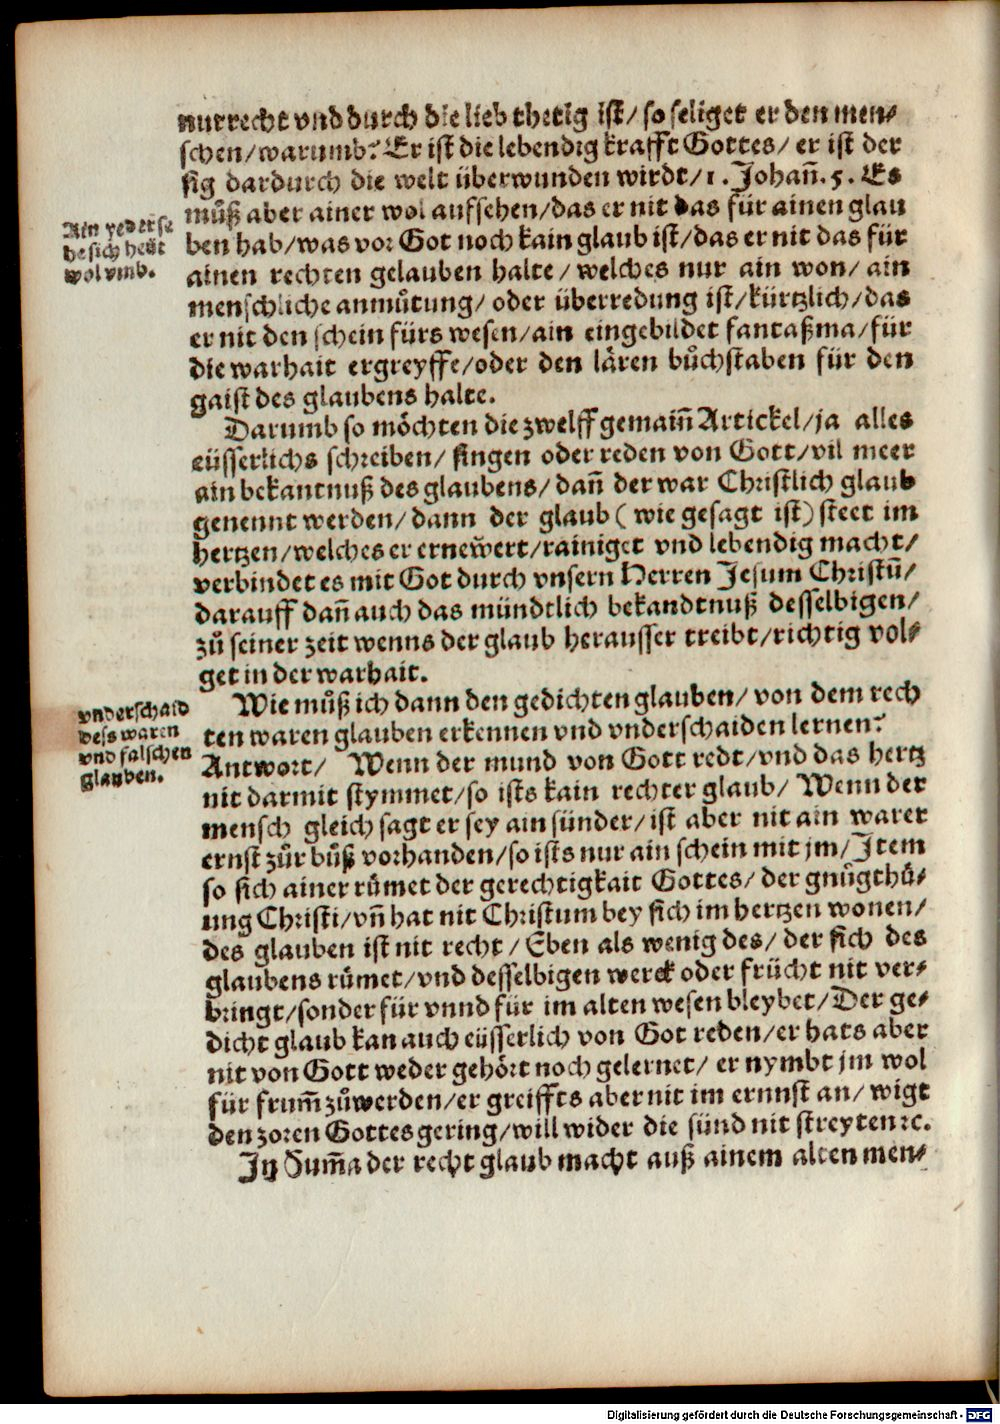 nur recht vnd durch die lieb thetig ist/ so seliget er den men⸗
schen/ warumb? Er ist die lebendig krafft Gottes/ er ist der
sig dardurch die welt überwunden wirdt/ 1. Johañ. 5. Es
můß aber ainer wol auffsehen/ das er nit das für ainen glau
ben hab/ was vor Got noch kain glaub ist/ das er nit das für
ainen rechten gelauben halte/ welches nur ain won/ ain
menschliche anmůtung/ oder überredung ist/ kürtzlich/ das
er nit den schein fürs wesen/ ain eingebildet fantaßma/ für
die warhait ergreyffe/ oder den lären bůchstaben für den
gaist des glaubens halte.
Ain yeder se
he sich heüt
wol vmb.
Darumb so möchten die zwelff gemaiñ Artickel/ ja alles
eüsserlichs schreiben/ singen oder reden von Gott/ vil meer
ain bekantnuß des glaubens/ dañ der war Christlich glaub
genennt werden/ dann der glaub (wie gesagt ist) steet im
hertzen/ welches er ernewert/ rainiget vnd lebendig macht/
verbindet es mit Got durch vnsern Herren Jesum Christũ/
darauff dañ auch das mündtlich bekandtnuß desselbigen/
zů seiner zeit wenns der glaub herausser treibt/ richtig vol⸗
get in der warhait.
Wie můß ich dann den gedichten glauben/ von dem rech
ten waren glauben erkennen vnd vnderschaiden lernen?
Antwort/ Wenn der mund von Gott redt/ vnd das hertz
nit darmit stymmet/ so ists kain rechter glaub/ Wenn der
mensch gleich sagt er sey ain sünder/ ist aber nit ain warer
ernst zůr bůß vorhanden/ so ists nur ain schein mit jm/ Jtem
so sich ainer růmet der gerechtigkait Gottes/ der gnůgthů⸗
ung Christi/ vñ hat nit Christum bey sich im hertzen wonen/
des glauben ist nit recht/ Eben als wenig des/ der sich des
glaubens růmet/ vnd desselbigen werck oder frücht nit ver⸗
bringt/ sonder für vnnd für im alten wesen bleybet/ Der ge⸗
dicht glaub kan auch eüsserlich von Got reden/ er hats aber
nit von Gott weder gehört noch gelernet/ er nymbt jm wol
für frum̃ zůwerden/ er greiffts aber nit im ernnst an/ wigt
den zoren Gottes gering/ will wider die sünd nit streyten ꝛc.
Jn Sum̃a der recht glaub macht auß ainem alten men⸗
vnderschaid
dess waren
vnd falschen
glauben.
Digitalisierung gefördert durch die Deutsche Forschungsgemeinschaft - DFG